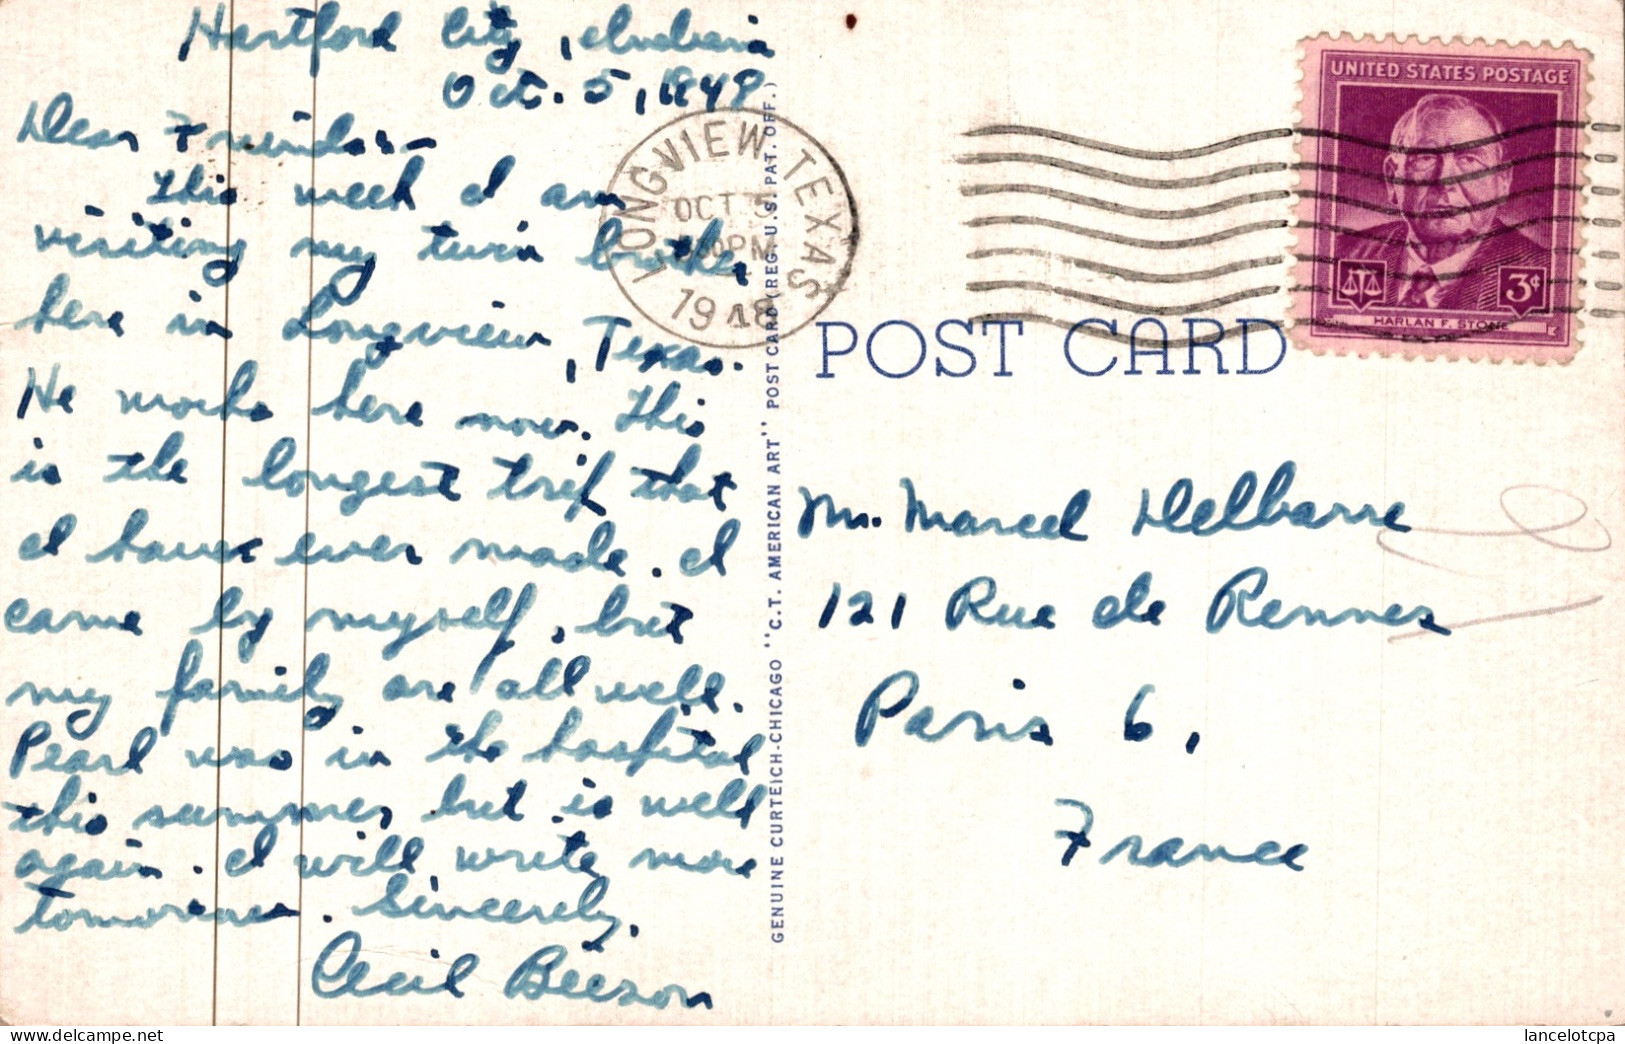 Hartford City, Indiana
Oct. 5, 1948
Dear Friends:-
This week I am
visiting my twin brother
here in Longview, Texas.
He works here now. This
is the longest trip that
I have ever made. I
came by myself, but
my family are all well.
Pearl was in the hospital
this summer, but is well
again. I will write more
tomorrow. Sincerely,
Cecil Beeson
GENUINE CURTEICH-CHICAGO "C.T. AMERICAN ART" POST CARD (REG. U.S. PAT. OFF.)
LONGVIEW TEXAS
OCT 5
PM
1948
UNITED STATES POSTAGE
3¢
HARLAN F. STONE
POST CARD
Mr. Marcel Delbarre
121 Rue de Rennes
Paris 6,
France
lancelotcpa